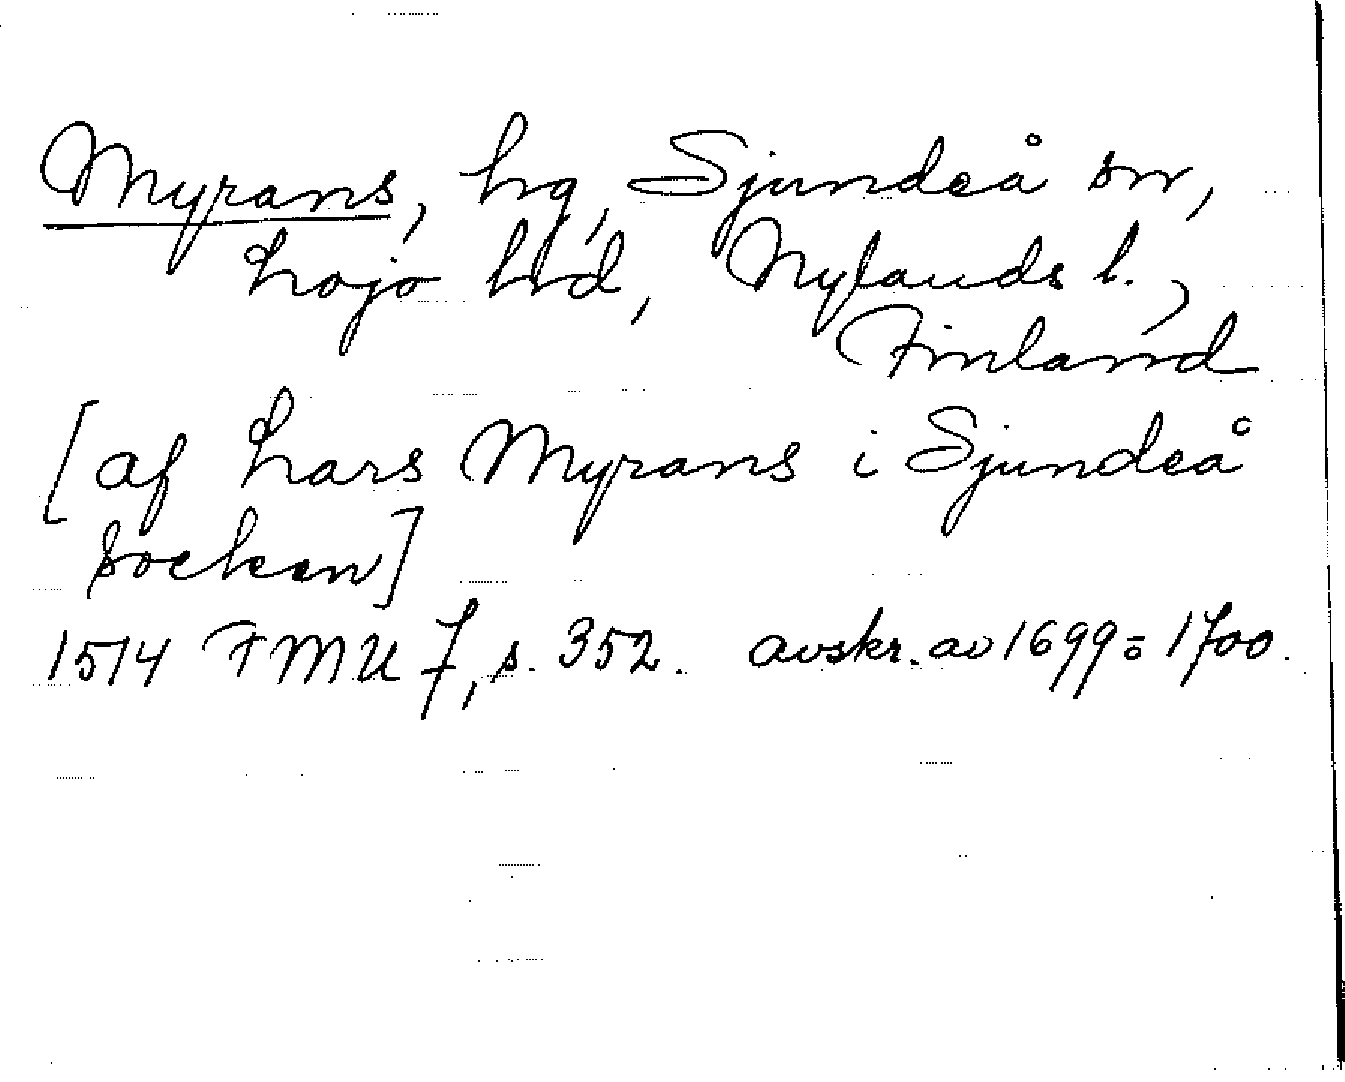 Myrans, hg, Sjundeå sn,
Lojo hd, Nylands l.,
Finland
[af Lars Myrans i Sjundeå
socken]
1514 FMU 7, s. 352. avskr. av 1699=1700.